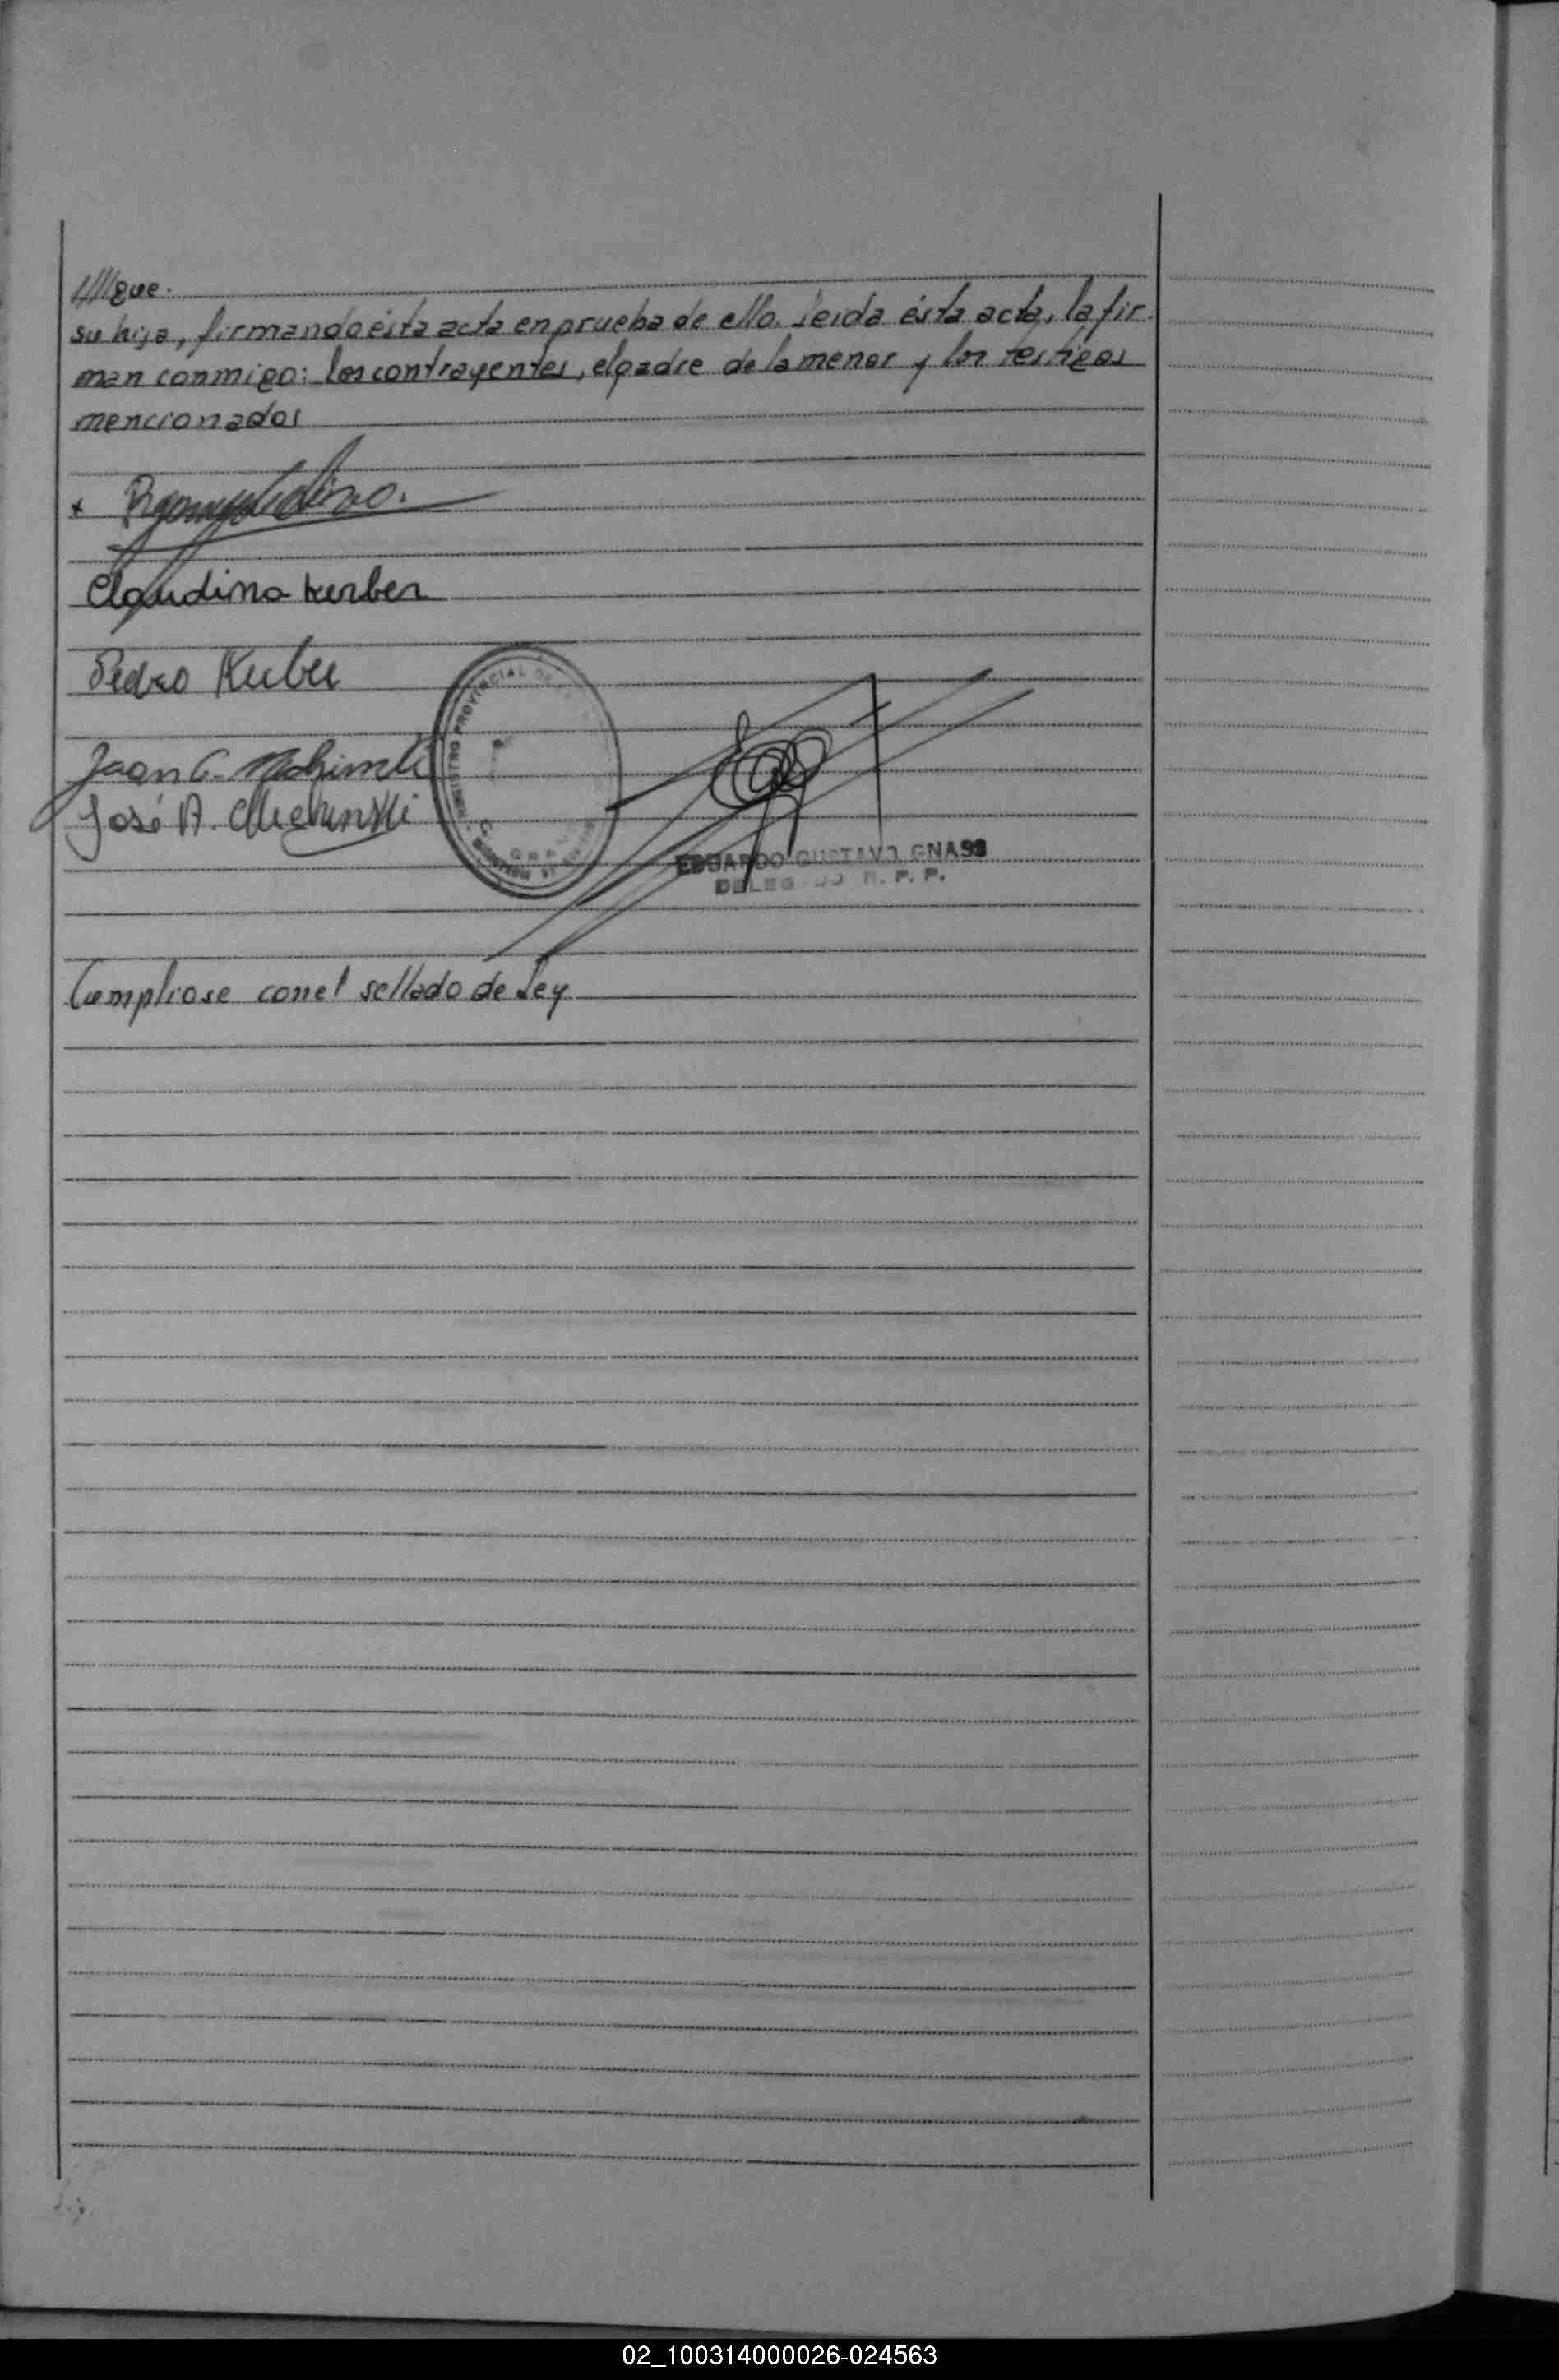 ////gue.
su hija, firmando ésta acta en prueba de ello. Leida ésta acta, la fir-
man conmigo: los contrayentes, el padre de la menor y los testigos
mencionados
Claudina Kerber
Pedro Kerber
Juan C.
José A.
REGISTRO PROVINCIAL DE
EDUARDO GUSTAVO GNASS
DELEGADO R. P. P.
Cumpliose con el sellado de Ley
02_100314000026-024563